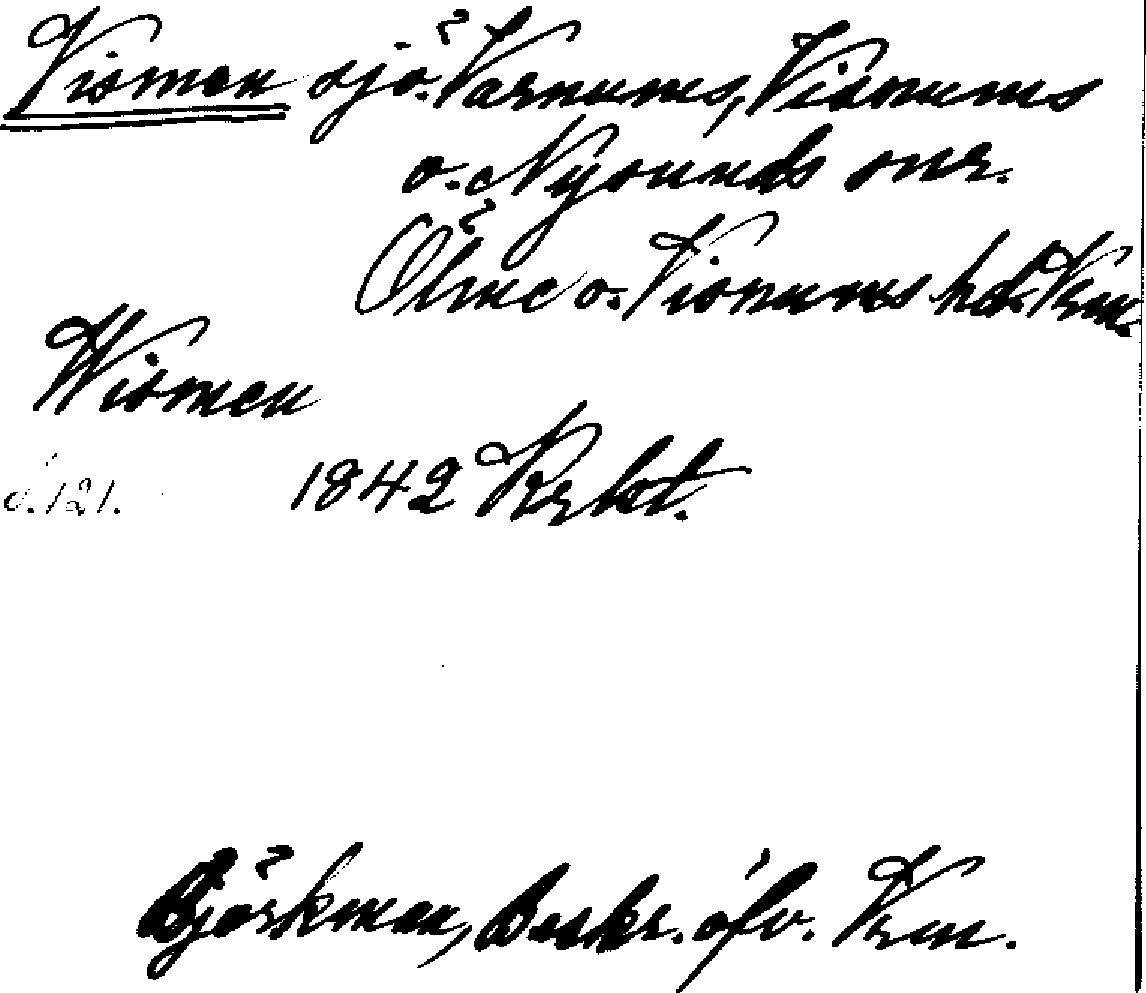 Vismen sjö. Varnums, Visnums
o. Nysunds snr.
Ölme o. Visnums hd. Vrm.
Wismen
s. 121. 1842
Björkman, Beskr. öfv. Vrm.